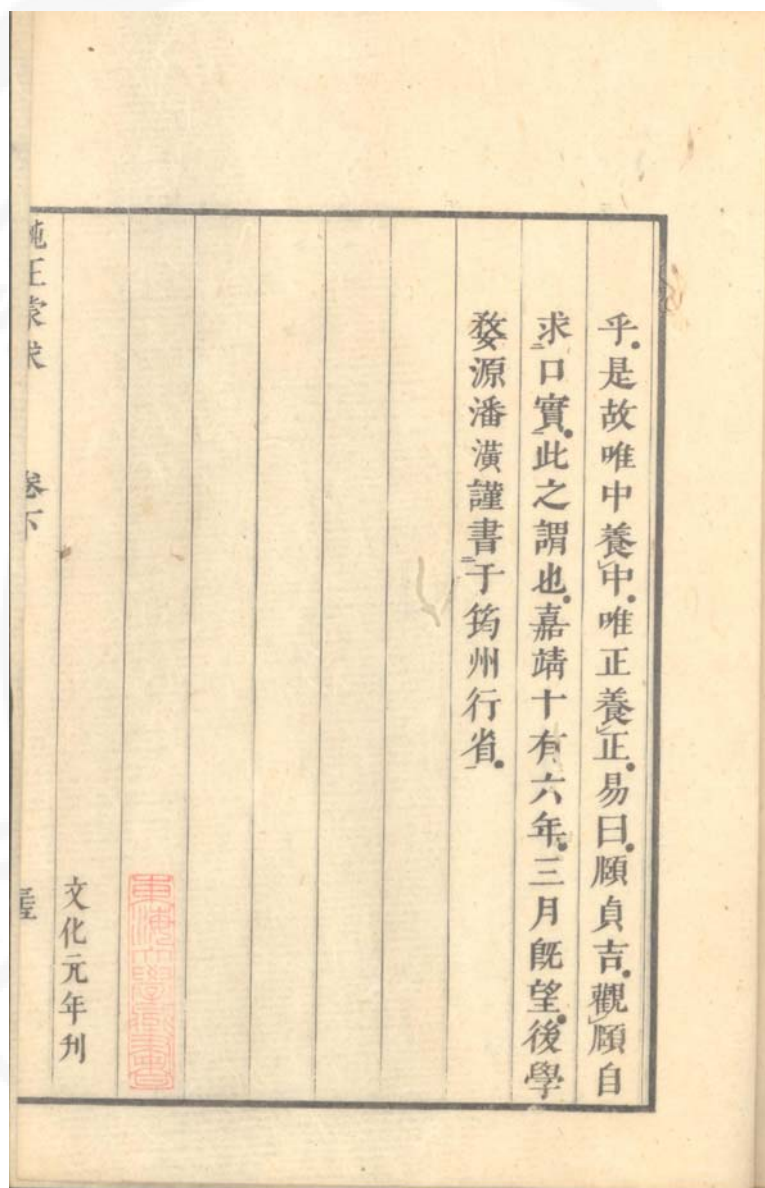 乎是故唯中養中唯正養正易曰頤貞吉觀頤自
求口實此之謂也嘉靖十有六年三月旣望後學
婺源潘潢謹書于筠州行省
東海大學藏書
文化元年刊
純正蒙求 卷下